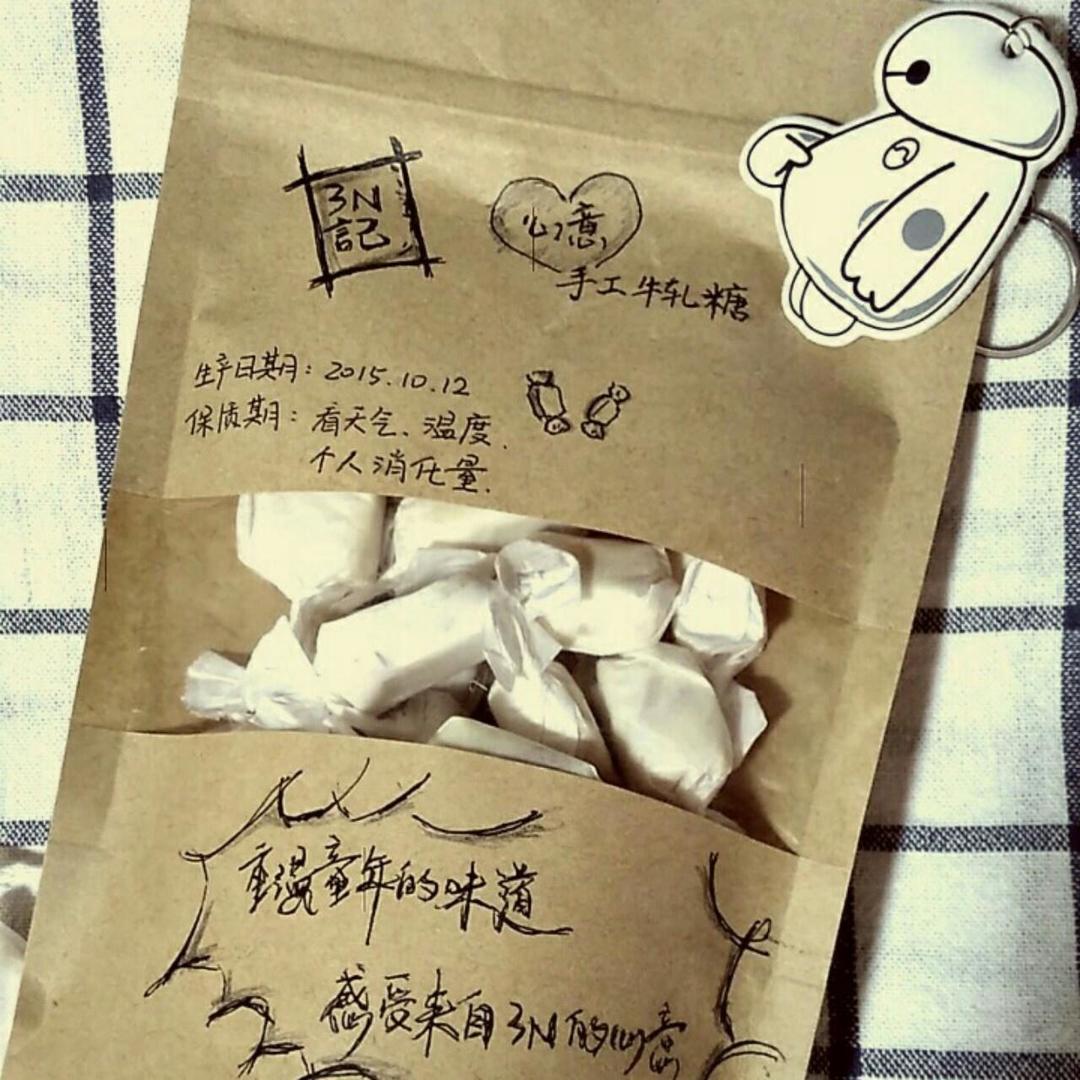 3N
記
心意
手工牛轧糖
生产日期：2015.10.12
保质期：看天气、温度.
个人消化量.
重温童年的味道
感受来自3N的心意